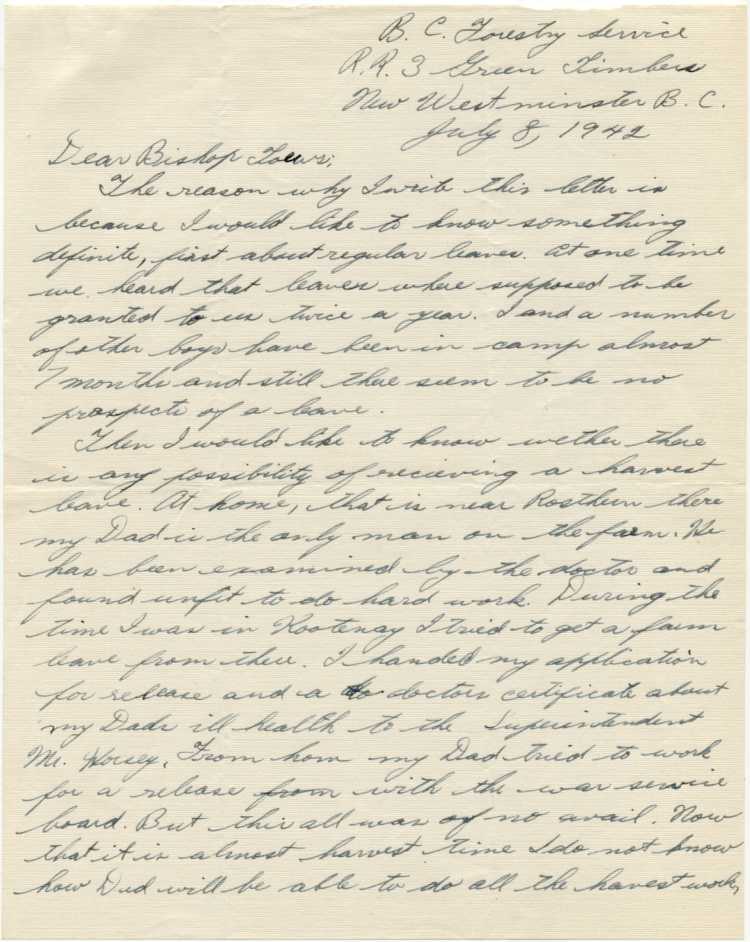 B. C. Forestry Service
R.R. 3 Green Timbers
New Westminster B. C.
July 8, 1942
Dear Bishop Toews;
The reason why I write this letter is
because I would like to know something
definite, first about regular leaves. At one time
we heard that leaves where supposed to be
granted to us twice a year. I and a number
of other boys have been in camp almost
7 months and still there seem to be no
prospects of a leave.
Then I would like to know wether there
is any possibility of recieving a harvest
leave. At home, that is near Rosthern there
my Dad is the only man on the farm. He
has been examined by the doctor and
found unfit to do hard work. During the
time I was in Kootenay I tried to get a farm
leave from there. I handed my application
for release and a doctors certificate about
my Dads ill health to the Superintendent
Mr. Horsey. From hom my Dad tried to work
for a release from with the war service
board. But this all was of no avail. Now
that it is almost harvest time I do not know
how Dad will be able to do all the havest work,